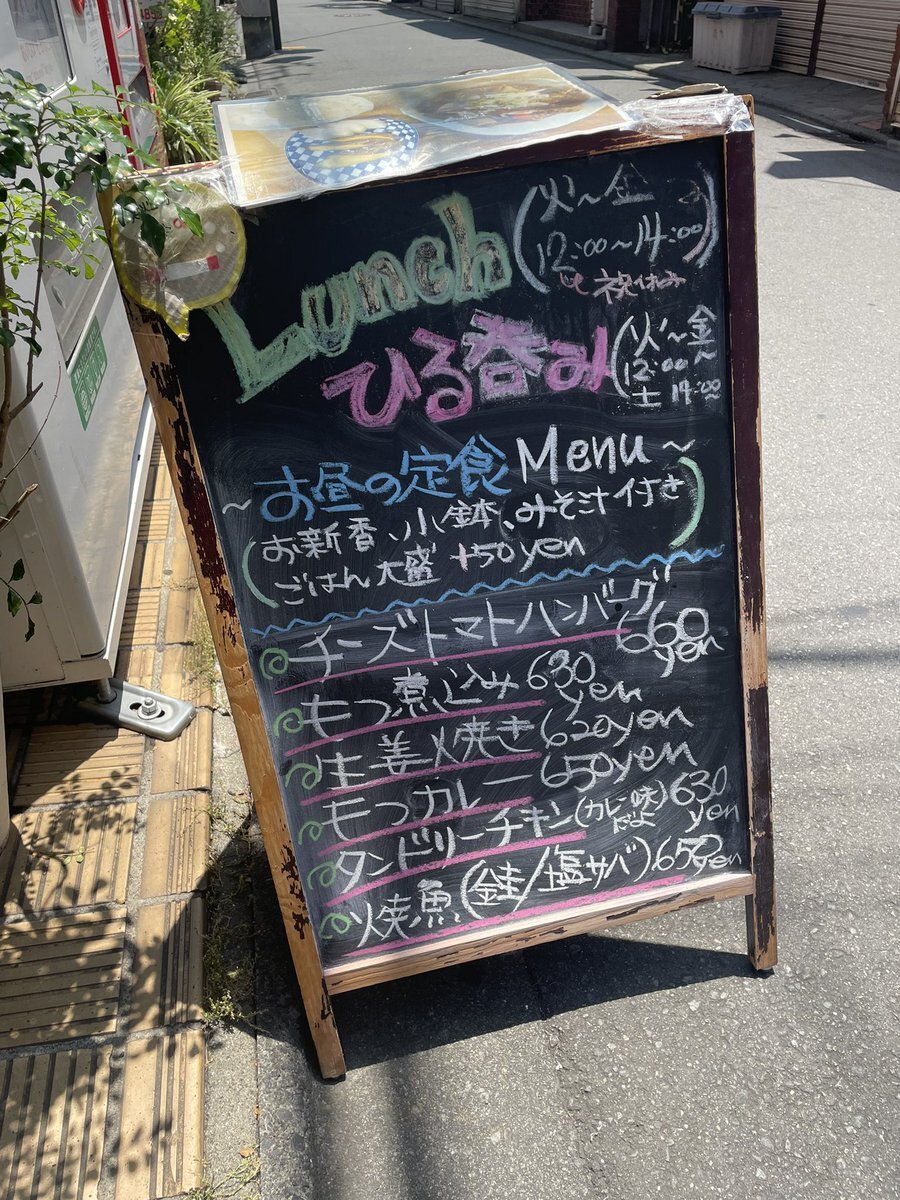 Lunch (火～金
12:00～14:00)
祝休み
ひる呑み (火～金
12:00～
土 14:00～
～お昼の定食Menu～
(お新香、小鉢、みそ汁付き)
ごはん大盛 +50yen
チーズトマトハンバーグ 660yen
もつ煮込み 630yen
生姜焼き 620yen
もつカレー 650yen
タンドリーチキン(カレー味だよ) 630yen
焼魚(鮭/塩サバ) 650yen